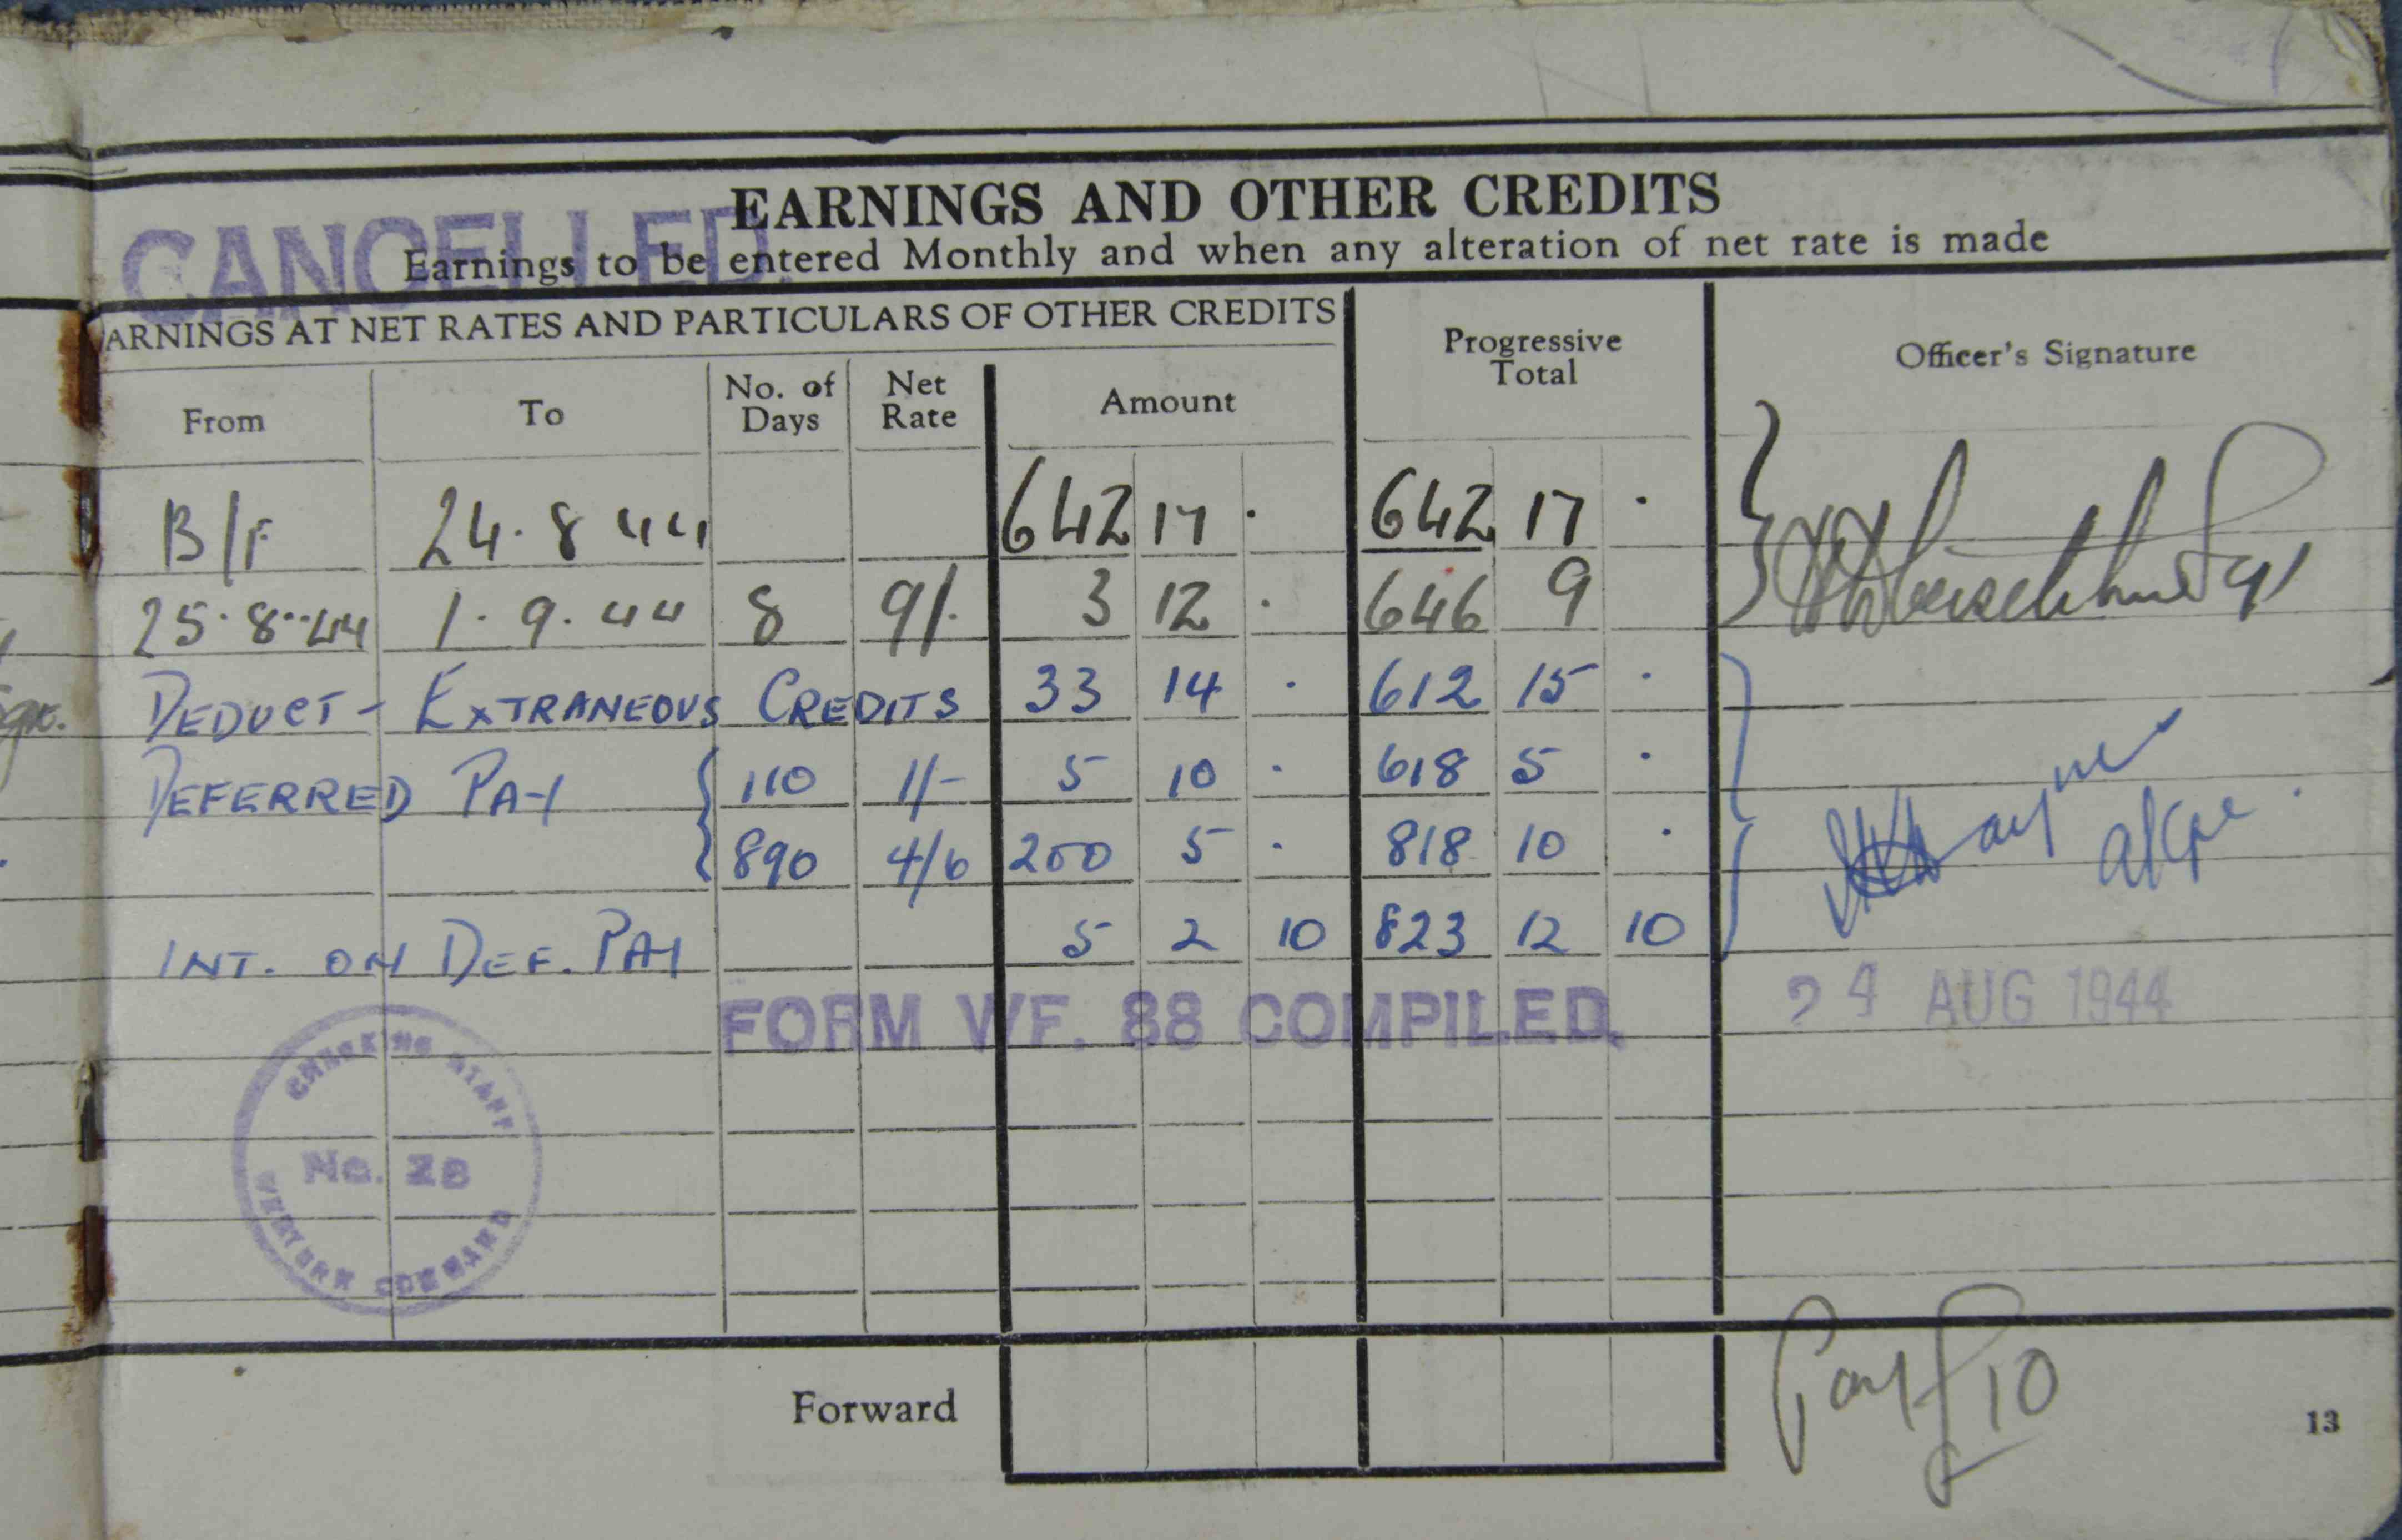 EARNINGS AND OTHER CREDITS
CANCELLED.
Earnings to be entered Monthly and when any alteration of net rate is made
ARNINGS AT NET RATES AND PARTICULARS OF OTHER CREDITS
Progressive Total
Officer's Signature
From To No. of Days Net Rate Amount
B/F 24.8 44 642 17 . 642 17 .
25.8.44 1.9.44 8 9/. 3 12 . 646 9
DEDUCT - EXTRANEOUS CREDITS 33 14 . 612 15 .
DEFERRED PAY { 110 1/- 5 10 . 618 5 .
890 4/6 200 5 . 818 10 .
INT. ON DEF. PAY 5 2 10 823 12 10
FORM WF. 88 COMPILED.
24 AUG 1944
CHECKING STAFF
No. 2B
WESTERN COMMAND
Forward
Pay £10
13